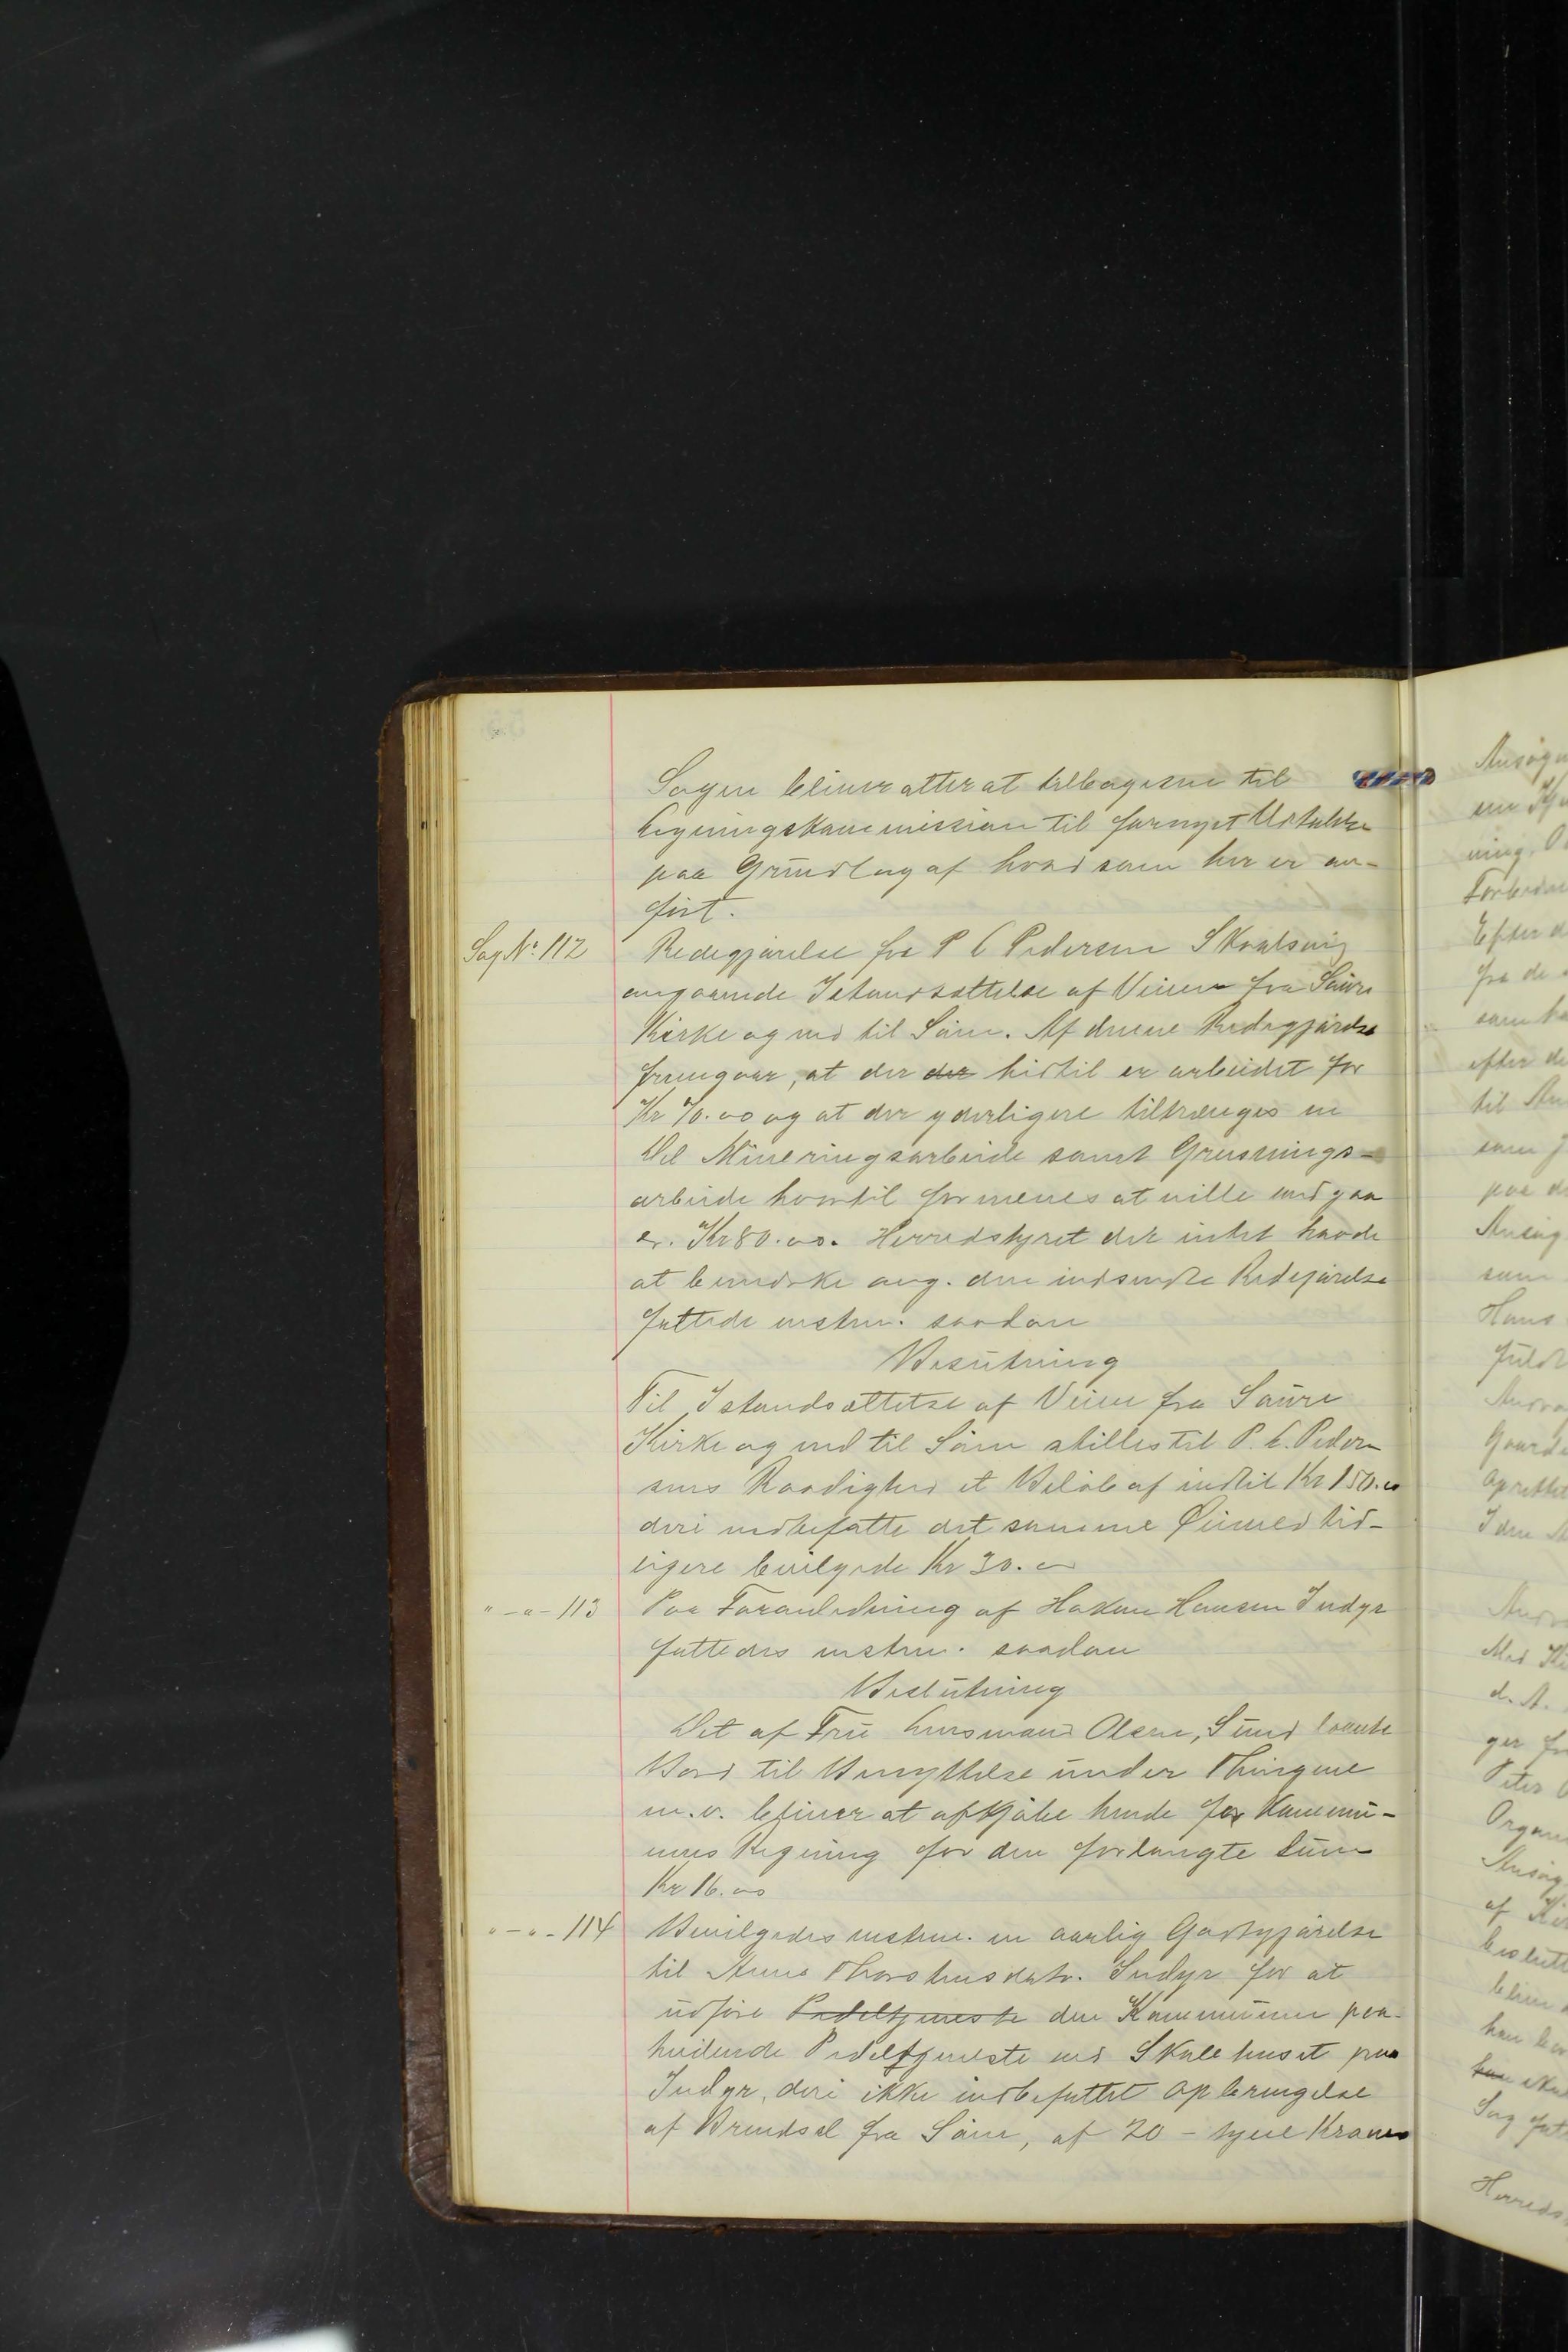 Sagen bliver atter at tilbagesende til
Ligningskommission til fornyet Udtalelse
paa Grundlag af hvad som her er an-
ført.
Sag No. 112 Redegjørelse fra P C Pedersen Skaalsvig
angaaende Istandsættelse af Veien fra Saura
Kirke og ned til Søen. Af denne Redegjørelse
fremgaar, at der der hidtil er arbeidet for
Kr 70.00 og at der yderligere tiltrænges en
Del Mineringsarbeide samt Grusnings-
arbeide hvortil formenes at ville medgaa
ca. Kr 80.00. Herredstyret der intet havde
at bemærke ang. den indsendte Redegjørelse
fattede enstem. saadan
Beslutning
Til Istandsættelse af Veien fra Saura
Kirke og ned til Søen stilles til P. C. Peder-
sens Raadighed et Beløb af indtil Kr 150.00
deri indbefattet det samme Øiemed tid-
ligere bevilgede Kr 30.00
" - " - 113 Paa Foranledning af Hakon Hansen Indyr
fattedes enstem. saadan
Beslutning
Det af Fru Lensmand Olsen, Sund laante
Bord til Benyttelse under Thingene
m.v. bliver at afkjøbe hende for Kommu-
nens Regning for den forlangte Sum
Kr 16.00
" - " - 114 Bevilgedes enstem. en aarlig Godtgjørelse
til Anna Thorstensdatr. Indyr for at
udføre Pedeltjeneste den Kommunen paa-
hvilende Pedeltjeneste ved Skolehuset paa
Indyr, deri ikke indbefattet Opbringelse
af Brændsel fra Søen, af 20 - tyve Kroner